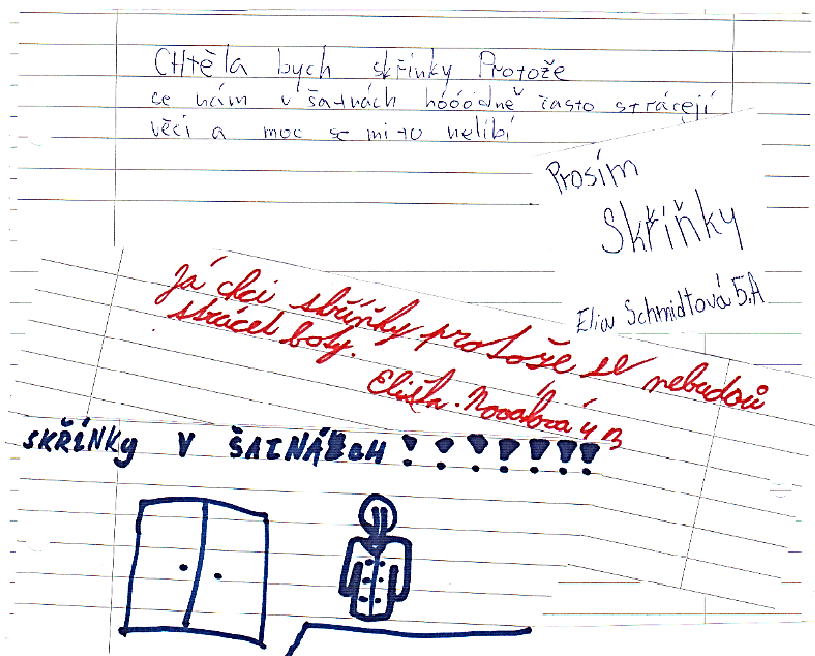 CHtěla bych skřínky Protože
se nám v šatnách hóóódně často strácejí
věci a moc se mi to nelíbí
Prosím
Skříňky
Ela Schmidtová 5.A
Já chci skříňky protože se nebudou
strácet boty.
Eliška Nováková 4 B
SKŘÍNKy V ŠATNÁCH !!!!!!!